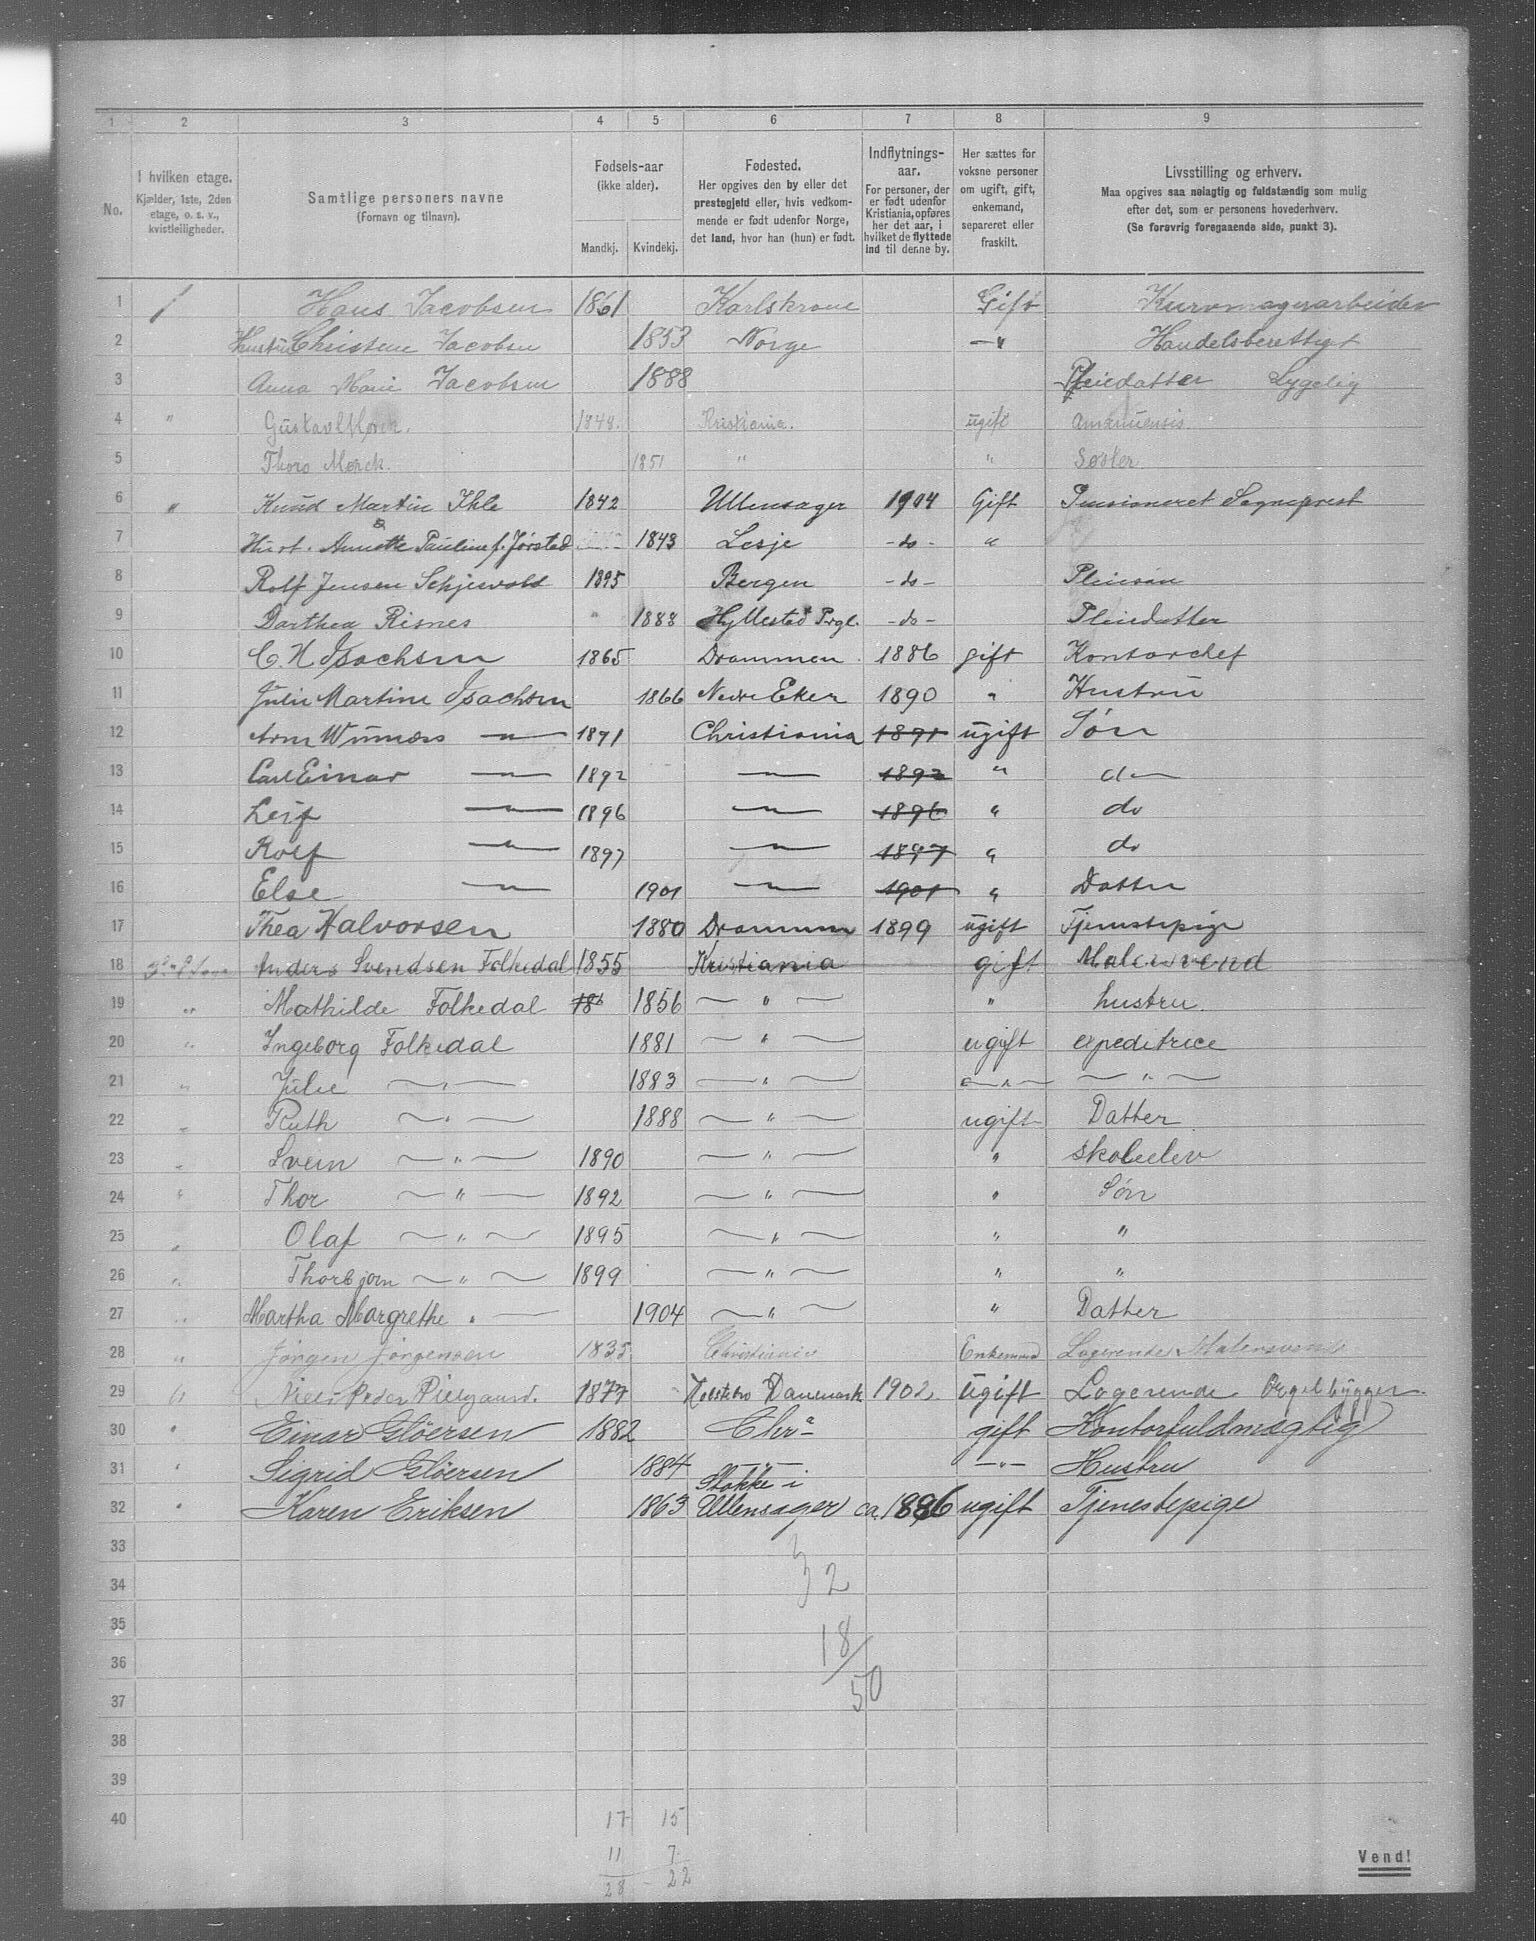 1 2 3 4 5 6 7 8 9
No.
I hvilken etage.
Kjælder, 1ste, 2den
etage, o. s. v.,
kvistleiligheder.
Samtlige personers navne
(Fornavn og tilnavn).
Fødsels-aar
(ikke alder).
Mandkj. Kvindekj.
Fødested.
Her opgives den by eller det
prestegjeld eller, hvis vedkom-
mende er født udenfor Norge,
det land, hvor han (hun) er født.
Indflytnings-
aar.
For personer, der
er født udenfor
Kristiania, opføres
her det aar, i
hvilket de flyttede
ind til denne by.
Her sættes for
voksne personer
om ugift, gift,
enkemand,
separeret eller
fraskilt.
Livsstilling og erhverv.
Maa opgives saa nøiagtig og fuldstændig som mulig
efter det, som er personens hovederhverv.
(Se forøvrig foregaaende side, punkt 3).
1 1 Hans Jacobsen 1861 Karlskrone Gift Kurvmagerarbeider
2 Hustru Christine Jacobsen 1853 Norge — " Handelsberettiget
3 Anna Marie Jacobsen 1888 Pleiedatter Sygelig
4 " Gustav Mørch. 1848. Kristiania. ugift Amanuensis
5 Thora Mørck. 1851 " " Søster
6 " Knud Martin Ihle 1842 Ullensager 1904 Gift Pensioneret Sogneprest
7 Hust. Annette Pauline f. Jørstad 1843 Lesje - do - "
8 Rolf Jensen Schjervold 1895 Bergen - do - Pleiesøn
9 Darthea Risnes " 1888 Hyllestad Prgl. - do - Pleiedatter
10 C. H. Isachsen 1865 Drammen 1886 gift Kontorchef
11 Julie Martine Isachsen 1866 Nedre Eker 1890 " Hustru
12 — " — 1891 Christiania 1891 ugift Søn
13 Carl Einar — " — 1892 — " — 1892 " do
14 Leif — " — 1896 — " — 1896 " do
15 Rolf — " — 1897 — " — 1897 " do
16 Else — " — 1901 — " — 1901 " Datter
17 Thea Halvorsen 1880 Drammen 1899 ugift Tjenestepige
18 Anders Svendsen Folkedal 1855 Kristiania gift Malersvend
19 " Mathilde Folkedal 186 1856 — " — " hustru.
20 " Ingeborg Folkedal 1881 — " — ugift expeditrice
21 " Julie — " — 1883 — " — — " — — " —
22 " Ruth — " — 1888 — " — ugift Datter
23 " Svein — " — 1890 — " — " skoleelev
24 " Thor — " — 1892 — " — " Søn
25 " Olaf — " — 1895 — " — " "
26 " Thorbjørn — " — 1899 — " — " "
27 " Martha Margrethe " — 1904 — " — " Datter
28 " Jørgen Jørgensen 1835 Christiania Enkemand Logerende Malersvend
29 " Niels Peder 1877 Holstebro Danemark 1902. ugift Logerende Orgelbygger
30 " Einar Gløersen 1882 Chr.a gift Kontorfuldmægtig
31 " Sigrid Gløersen 1884 — " — — " — Hustru
32 " Karen Eriksen 1863 Stokke i Ullensager ca. 1886 ugift Tjenestepige
33
34 32
35
36 18
37 50
38
39
40 17 15
11 7
28 - 22
Vend!